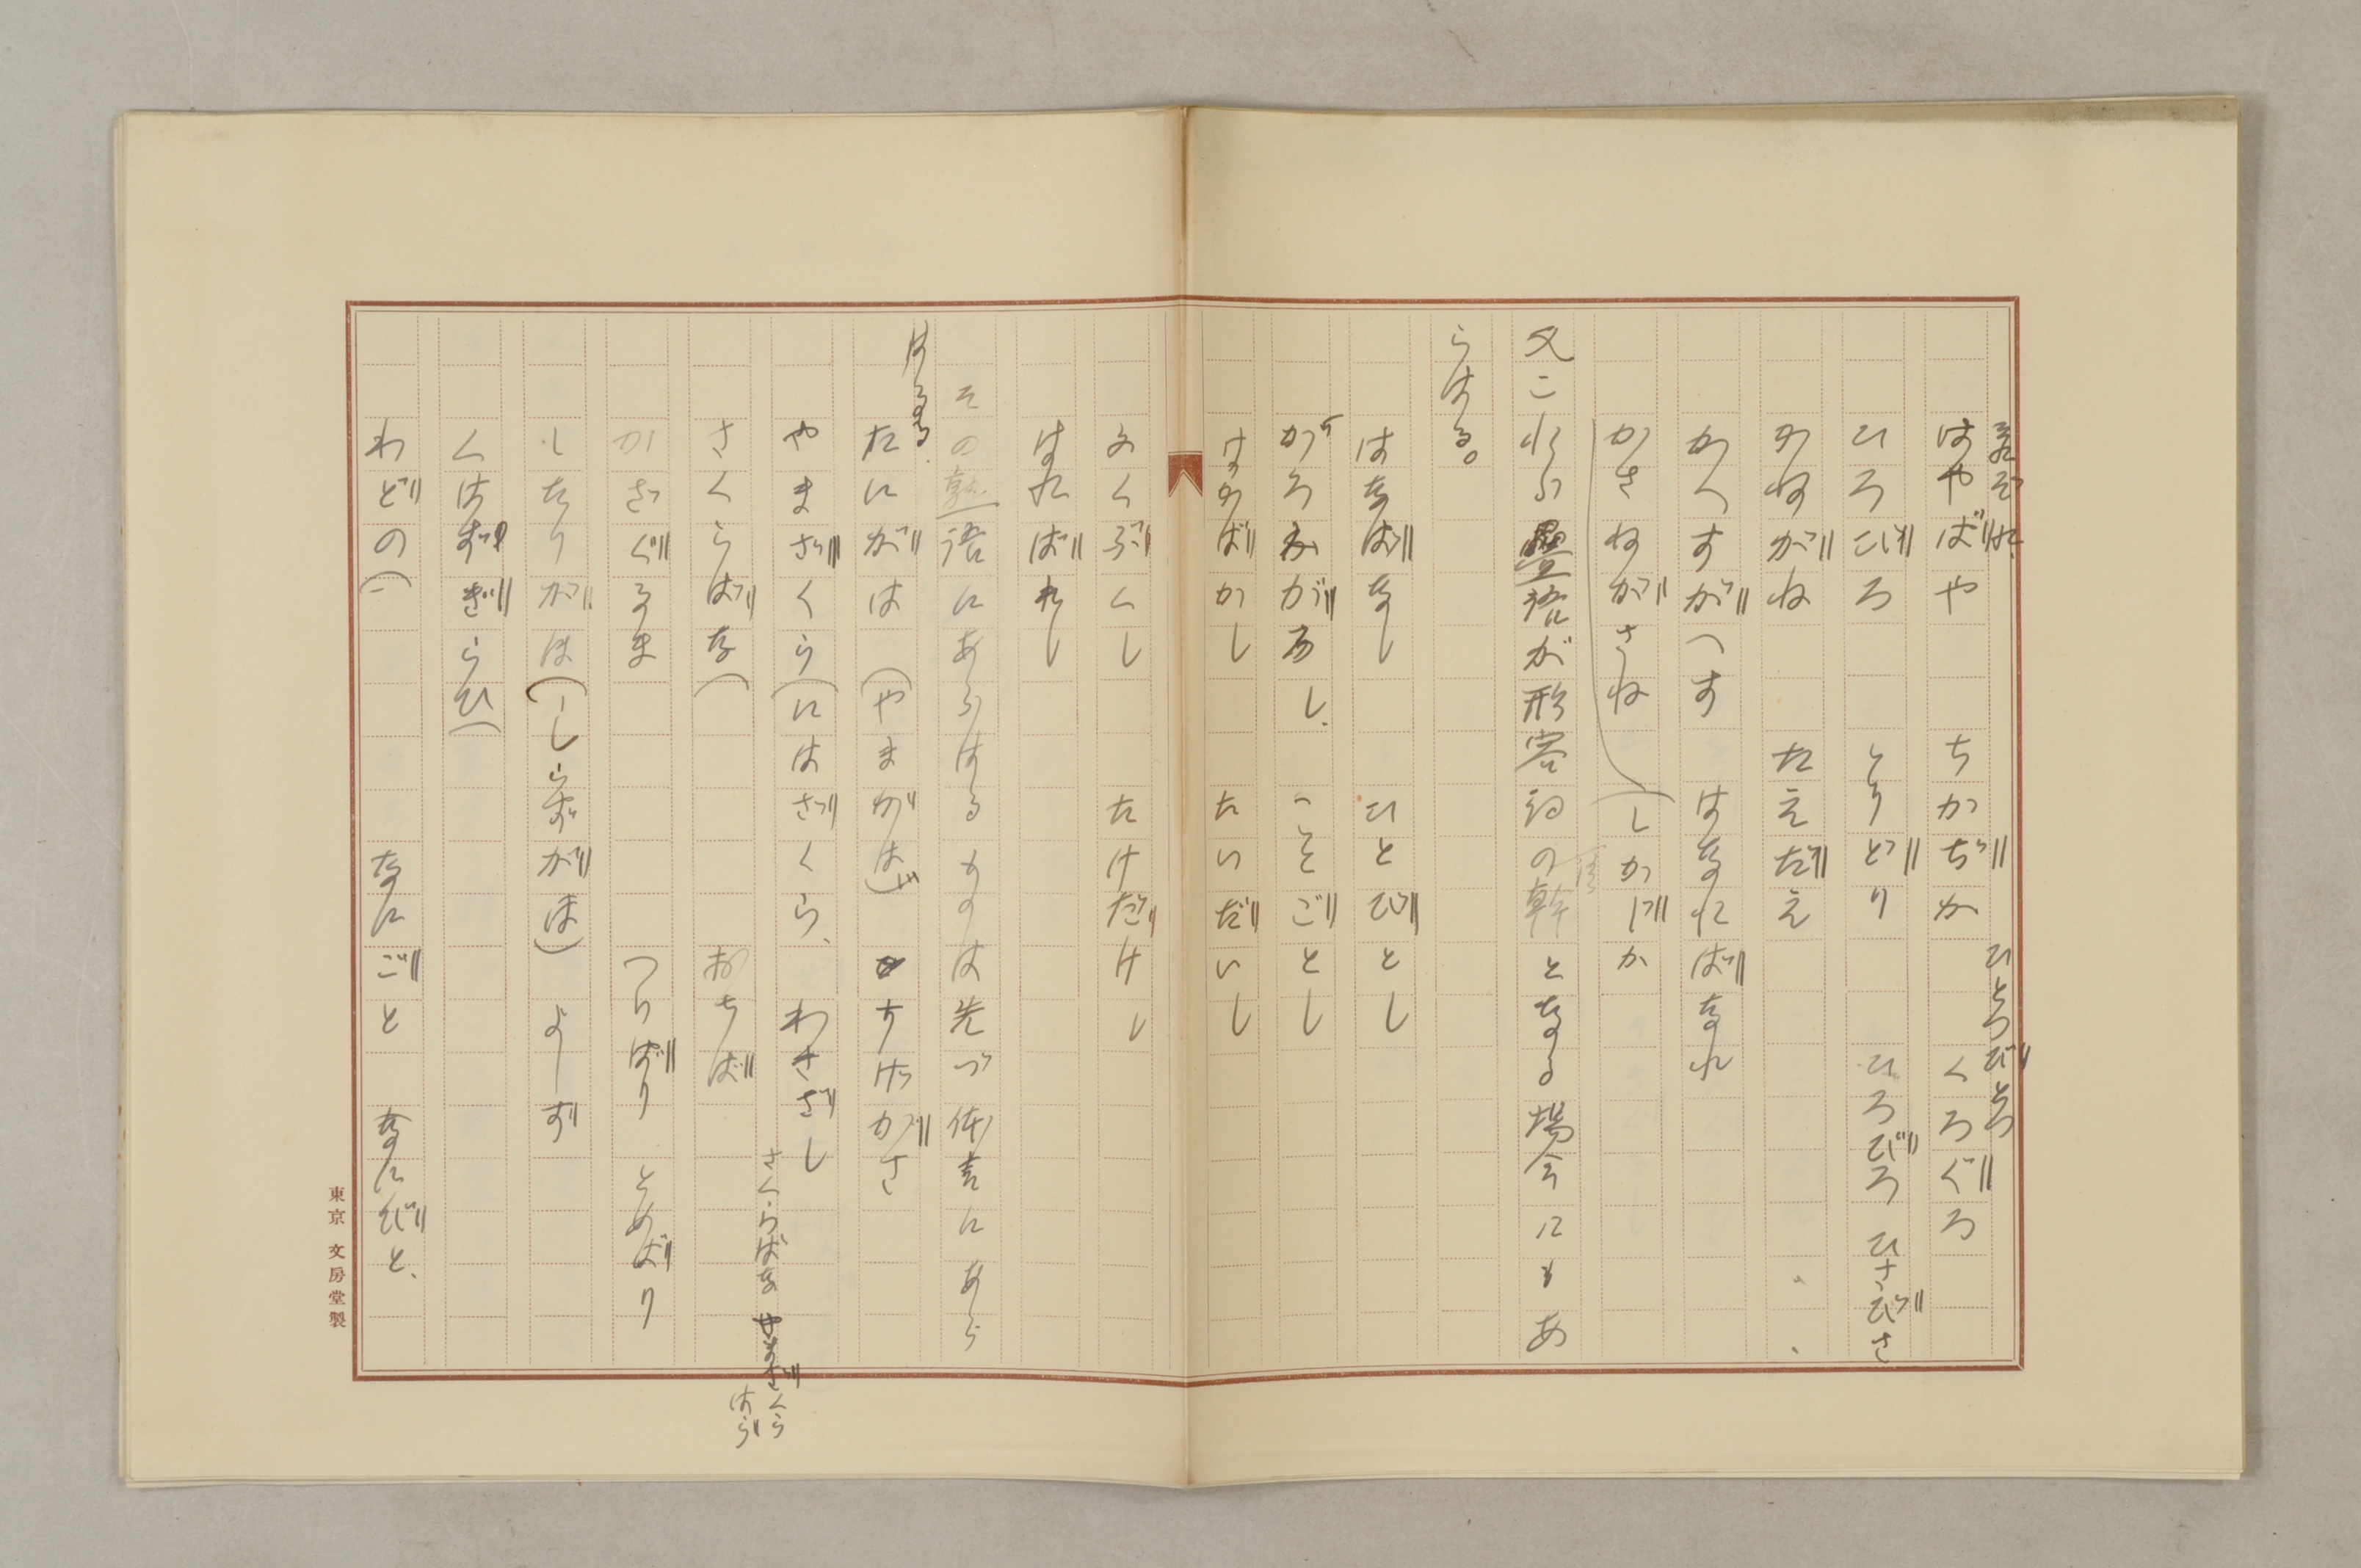 ひとつびとつ
はやばや　ちかぢか　くろぐろ
ひろびろ　とりどり　ひろびろ　ひさびさ
かねがね　たえだえ
かへすがへす　はなればなれ
かさねがさね（しかじか
又これら畳語が形容詞の幹となる場合にもあ
らはる。
はなばなし　ひとびとし
かろがろし　ことごとし
はかばかし　たいだいし
みくぶくし　たけだけし
はればれし
その熟語にあらはるものは先づ体言にあら
はるる
たにがは（やまがは）　すげがさ
やまざくら（にはざくら、　わざざし
さくらばな（　おちば
さくらばな　やまざくら
ばら
かざぐるま　つりばり　とめばり
したりがほ（ーしらずがほ）　よーず
くはずぎらひ（
わどの（　なにごと　なにびと、
東京　文房堂製